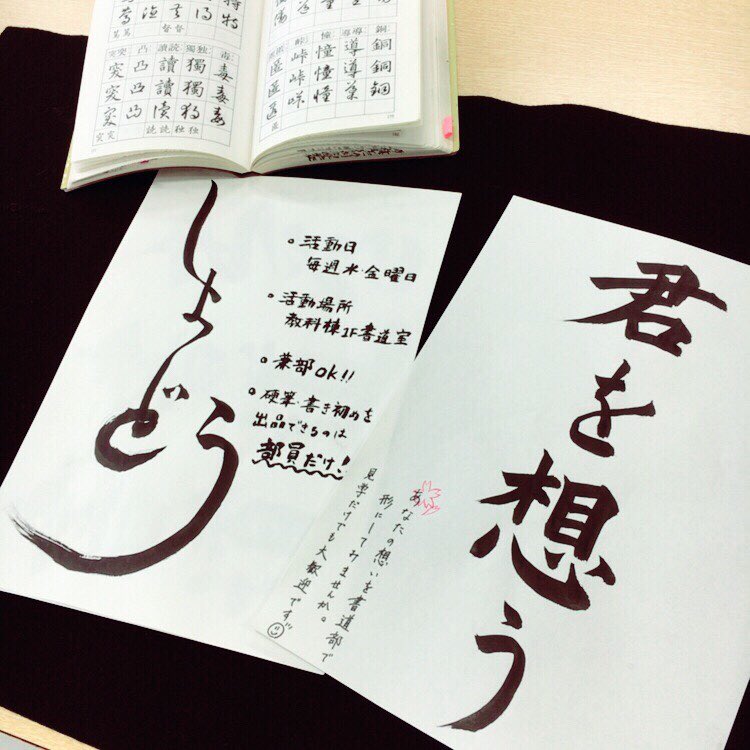 しょどう
• 活動日
毎週水・金曜日
• 活動場所
教科棟1F書道室
• 兼部OK!!
• 硬筆・書き初めを
出品できるのは
部員だけ!
君を想う
あなたの想いを書道部で
形にしてみませんか。
見学だけでも大歓迎です
銅
銅
銅
導導
導
導
憧
憧
憧
憧
峠
峠
峠
毒
毒
毒
毒
獨独
獨
獨
独
独独
讀読
讀
讀
読
読読
凸
凸
凸
凸
突突
突
突
突
突突
督督
篤篤
特
得